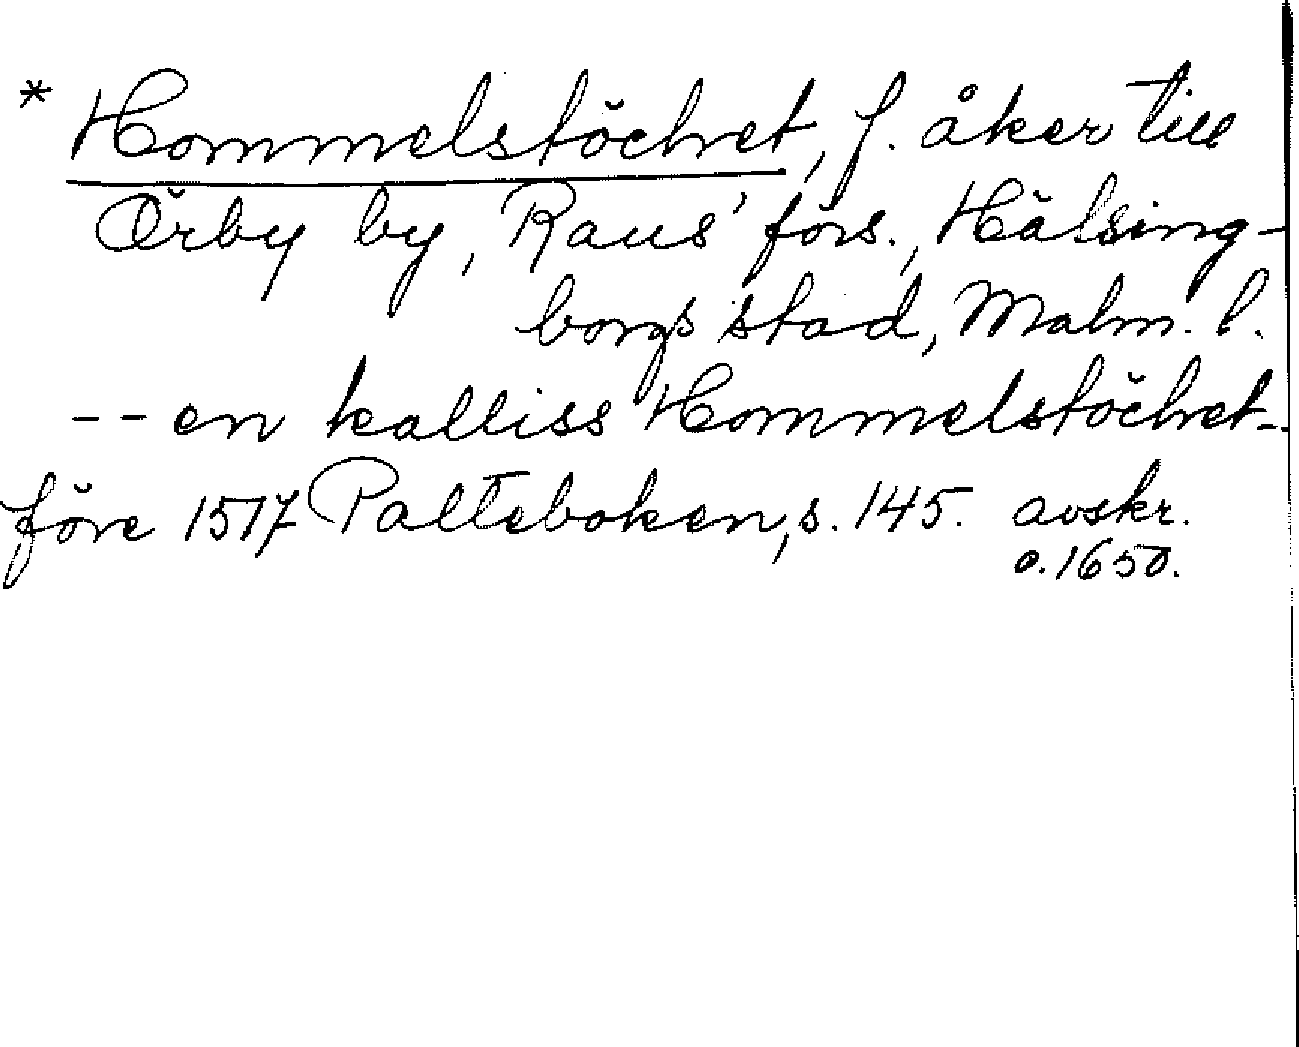 * Hommelstöchet, f. åker till
Örby by, Raus' förs., Hälsing-
borgs stad, Malm. l.
-- en kalliss Hommelstöchet--
före 1517 Palteboken, s. 145. avskr.
o. 1650.